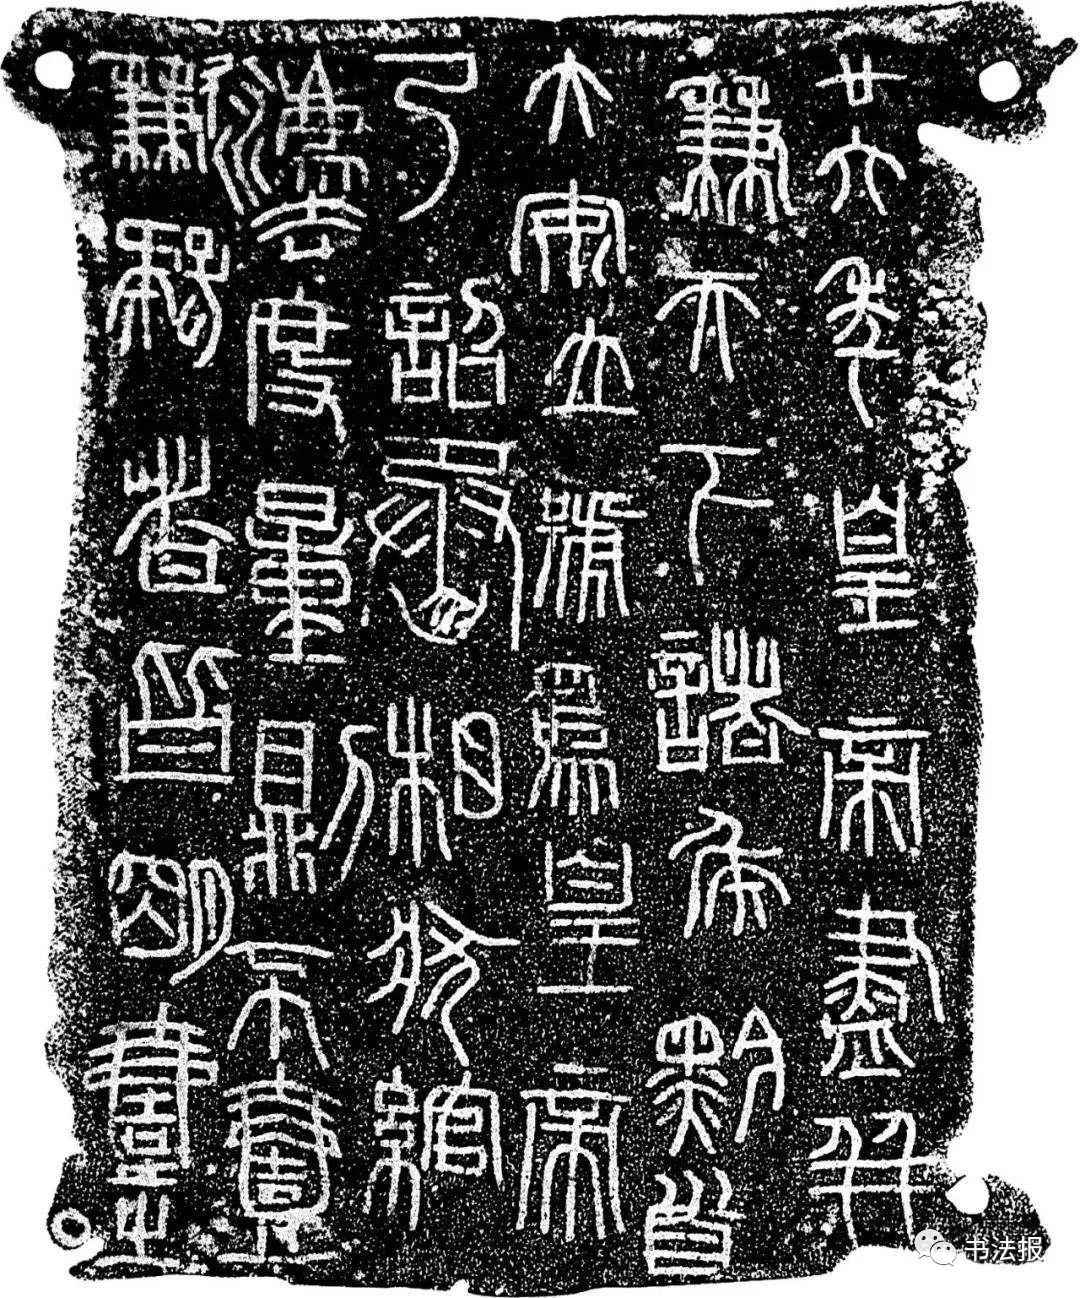 廿六年皇帝盡并
兼天下諸侯黔首
大安立號為皇帝
乃詔丞相狀綰
灋度量則不壹
歉疑者皆明壹之
书法报